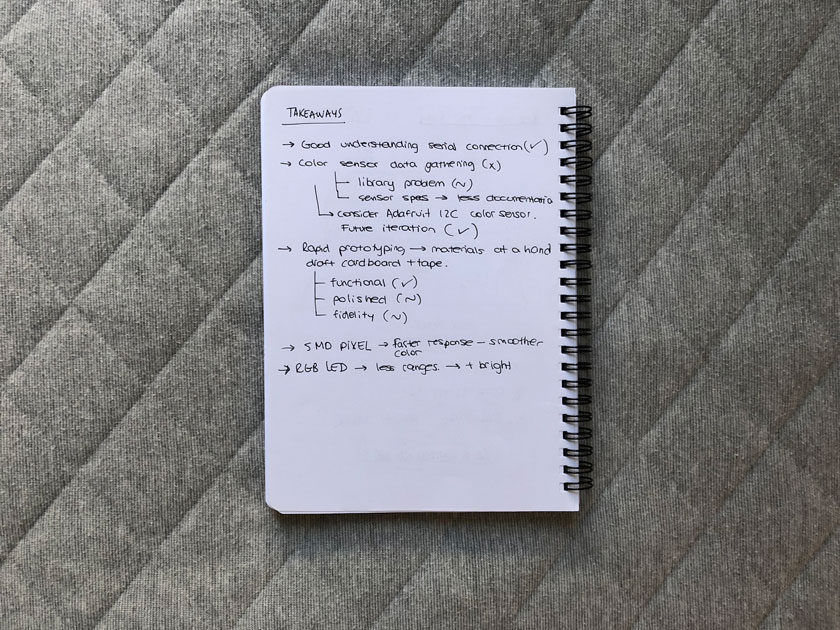 TAKEAWAYS
→ Good understanding serial connection (✓)
→ Color sensor data gathering (x)
library problem (~)
sensor spes → less documentatio
→ consider Adafruit I2C color sensor.
Future iteration (✓)
→ Rapid prototyping → materials at a hand
draft cardboard + tape.
functional (✓)
polished (~)
fidelity (~)
→ SMD PIXEL → faster response – smoother
color
→ RGB LED → less ranges. → + bright